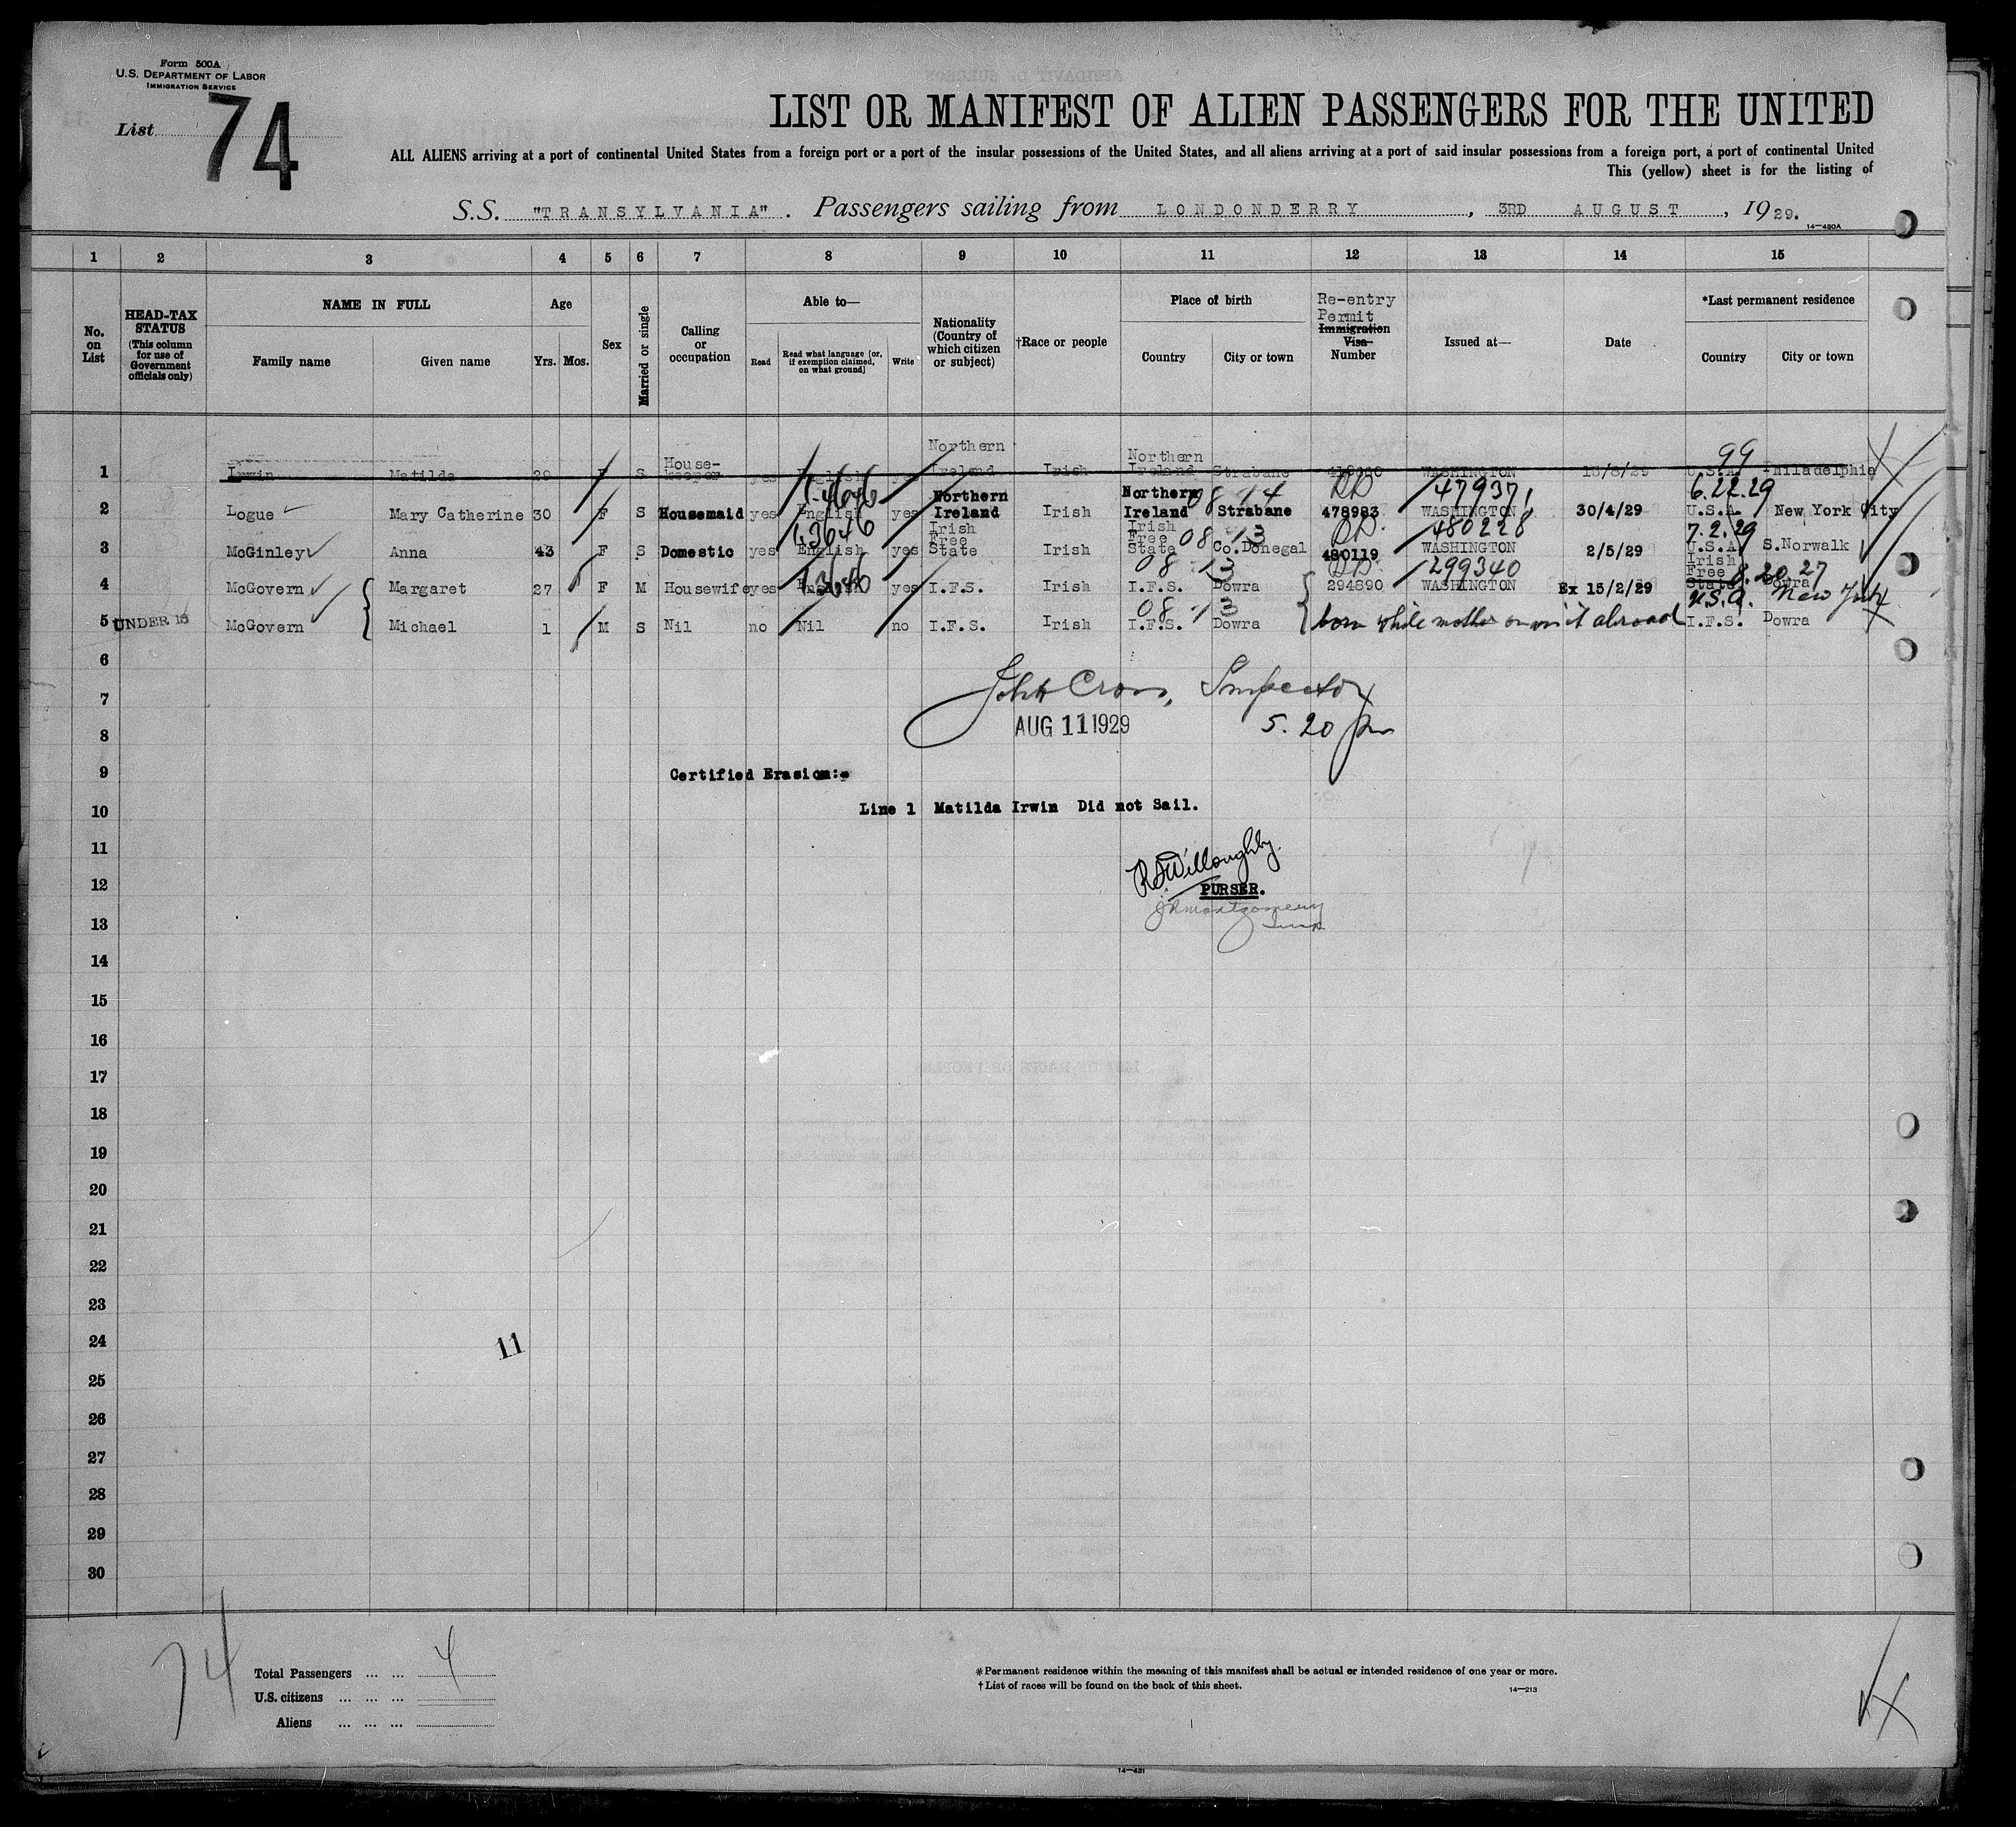 Form 500A
U.S. DEPARTMENT OF LABOR
IMMIGRATION SERVICE
List 74
LIST OR MANIFEST OF ALIEN PASSENGERS FOR THE UNITED
ALL ALIENS arriving at a port of continental United States from a foreign port or a port of the insular possessions of the United States, and all aliens arriving at a port of said insular possessions from a foreign port, a port of continental United
This (yellow) sheet is for the listing of
S.S. "TRANSYLVANIA". Passengers sailing from LONDONDERRY, 3RD AUGUST, 1929.
14—430A
1 2 3 4 5 6 7 8 9 10 11 12 13 14 15
No. on List
HEAD-TAX STATUS (This column for use of Government officials only)
NAME IN FULL
Family name Given name
Age
Yrs. Mos.
Sex
Married or single
Calling or occupation
Able to—
Read Read what language [or, if exemption claimed, on what ground] Write
Nationality (Country of which citizen or subject)
†Race or people
Place of birth
Country City or town
Re-entry Permit
Immigration Visa Number
Issued at—
Date
*Last permanent residence
Country City or town
1 Irwin Matilda 29 F S House-keeper yes English Northern Ireland Irish Northern Ireland Strabane WASHINGTON U.S.A. Philadelphia
99
2 Logue Mary Catherine 30 F S Housemaid yes English yes Northern Ireland Irish Northern Ireland Strabane 478983 WASHINGTON 30/4/29 U.S.A. New York City
08 14 479371 6.22.29
3 McGinley Anna 43 F S Domestic yes English yes Irish Free State Irish Irish Free State Co.Donegal 480119 WASHINGTON 2/5/29 U.S.A. S.Norwalk
08 13 480228 7.2.29
4 McGovern Margaret 27 F M Housewife yes English yes I.F.S. Irish I.F.S. Dowra 294890 WASHINGTON Ex 15/2/29 Irish Free State Dowra
08 13 299340 8.20 27
U.S.A. New York
5 UNDER 16 McGovern Michael 1 M S Nil no Nil no I.F.S. Irish I.F.S. Dowra born while mother on visit abroad I.F.S. Dowra
08 13
6
7
John Cross, Inspector
AUG 11 1929 5.20 pm
8
9
Certified Erasion:-
10
Line 1 Matilda Irwin Did not Sail.
11
12
R Willoughby.
PURSER.
13
JR Montgomery
Insp
14
15
16
17
18
19
20
21
22
23
24
11
25
26
27
28
29
30
74
Total Passengers ... ... 4
U.S. citizens ... ... ...
Aliens ... ... ...
*Permanent residence within the meaning of this manifest shall be actual or intended residence of one year or more.
†List of races will be found on the back of this sheet.
14—213
14—431